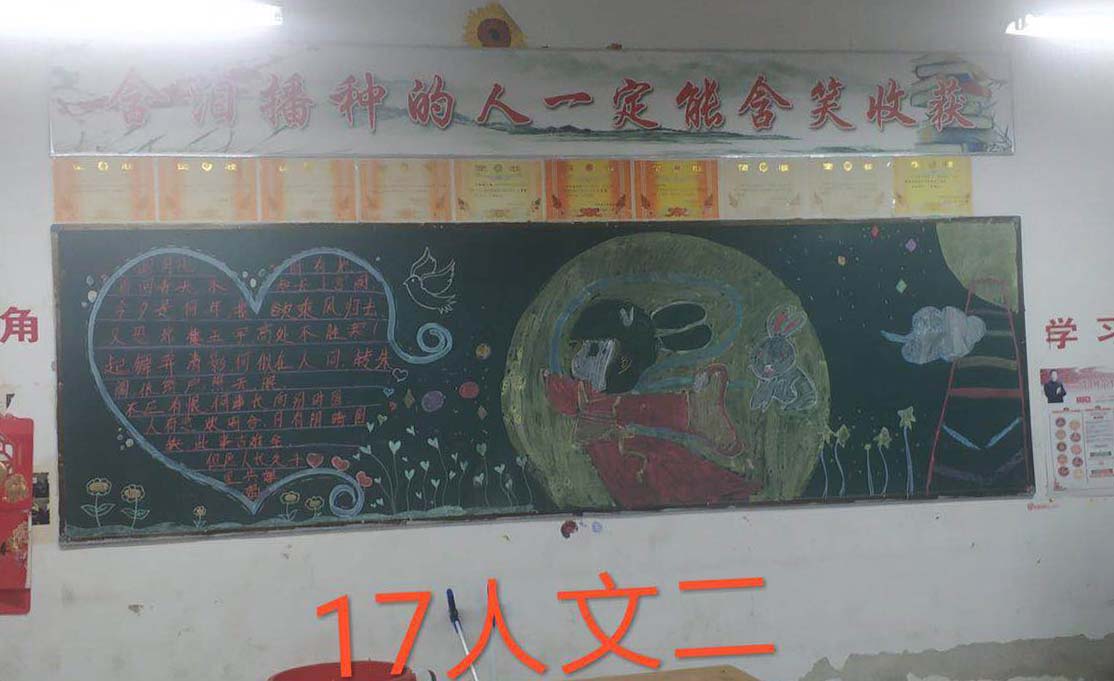 含泪播种的人一定能含笑收获
明月几时有把
酒问青天不知天上宫阙
今夕是何年我欲乘风归去
又恐琼楼玉宇高处不胜寒
起舞弄清影何似在人间转朱
阁低绮户照无眠
不应有恨何事长向别时圆
人有悲欢离合月有阴晴圆
缺此事古难全
但愿人长久千
里共婵
娟
角
学习
17人文二